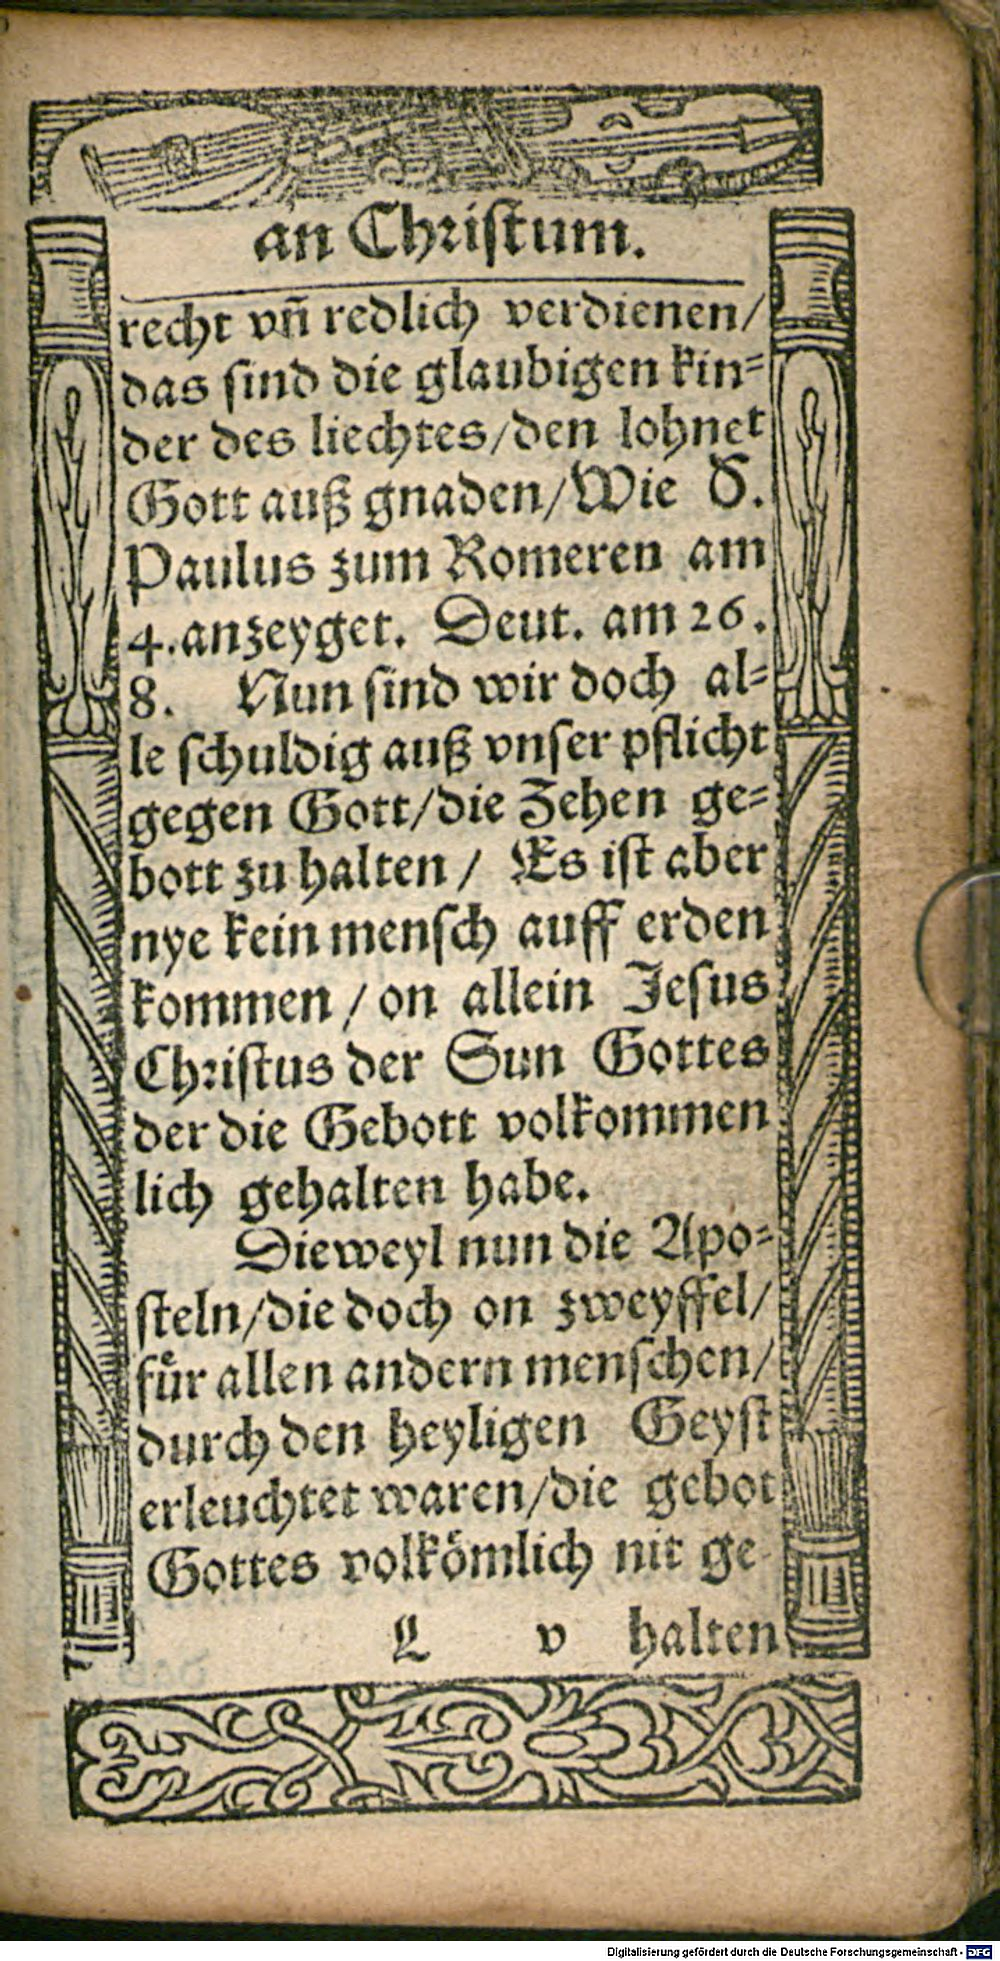 an Chriſtum.
recht vn̄ redlich verdienen/
das ſind die glaubigen kin⸗
der des liechtes/den lohnet
Gott auß gnaden/Wie S.
Paulus zum Romeren am
4.anzeyget. Deut. am 26.
8. Nun ſind wir doch al⸗
le ſchuldig auß vnſer pflicht
gegen Gott/die Zehen ge⸗
bott zu halten / Es iſt aber
nye kein menſch auff erden
kommen / on allein Jeſus
Chriſtus der Sun Gottes
der die Gebott volkommen
lich gehalten habe.
Dieweyl nun die Apo⸗
ſteln/die doch on zweyffel/
fuͤr allen andern menſchen/
durch den heyligen Geyſt
erleuchtet waren/die gebot
Gottes volkömlich nit ge
L v halten
Digitalisierung gefördert durch die Deutsche Forschungsgemeinschaft - DFG